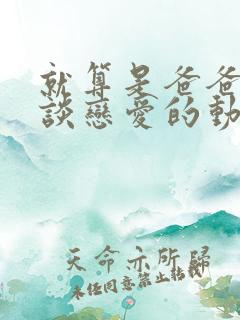 就算是爸爸
談戀愛的動
天命示所歸
未經同意禁止轉載